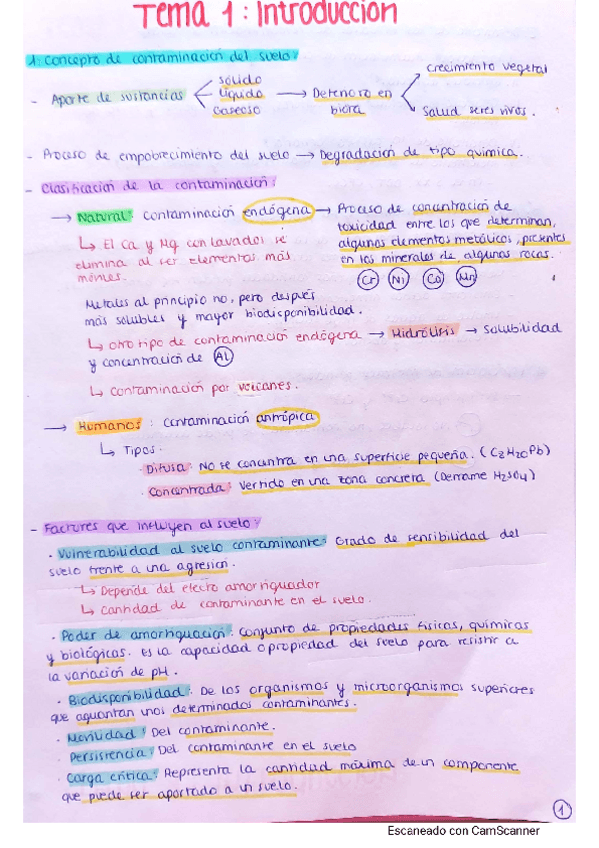 Tema 1: Introducción
1. Concepto de contaminación del suelo:
- Aporte de sustancias < sólido líquido Gaseoso → Deterioro en biota < crecimiento vegetal Salud seres vivos.
- Proceso de empobrecimiento del suelo → Degradación de tipo química.
- Clasificación de la contaminación:
→ Natural: Contaminación endógena → Proceso de concentración de
toxicidad entre los que determinan,
algunos elementos metálicos, presentes
en los minerales de algunas rocas.
Cr Ni Co Mn
↳ El Ca y Mg con lavados se
elimina al ser elementos más
móviles.
Metales al principio no, pero después
más solubles y mayor biodisponibilidad.
↳ Otro tipo de contaminación endógena → Hidrólisis → Solubilidad
y concentración de Al
↳ Contaminación por volcanes.
→ Humanos: Contaminación antrópica
↳ Tipos.
· Difusa: No se concentra en una superficie pequeña. (C8H20Pb)
· Concentrada: Vertido en una zona concreta (Derrame H2SO4)
- Factores que influyen al suelo:
· Vulnerabilidad al suelo contaminante: Grado de sensibilidad del
suelo frente a una agresión.
↳ Depende del efecto amortiguador
↳ Cantidad de contaminante en el suelo.
· Poder de amortiguación: Conjunto de propiedades físicas, químicas
y biológicas. Es la capacidad o propiedad del suelo para resistir a
la variación de pH.
· Biodisponibilidad: De los organismos y microorganismos superiores
que aguantan unos determinados contaminantes.
· Movilidad: Del contaminante.
· Persistencia: Del contaminante en el suelo
· Carga crítica: Representa la cantidad máxima de un componente
que puede ser aportado a un suelo.
1
Escaneado con CamScanner